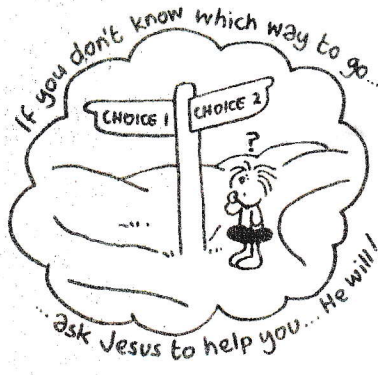 If you don't know which way to go...
CHOICE 1
CHOICE 2
?
...ask Jesus to help you... He will!